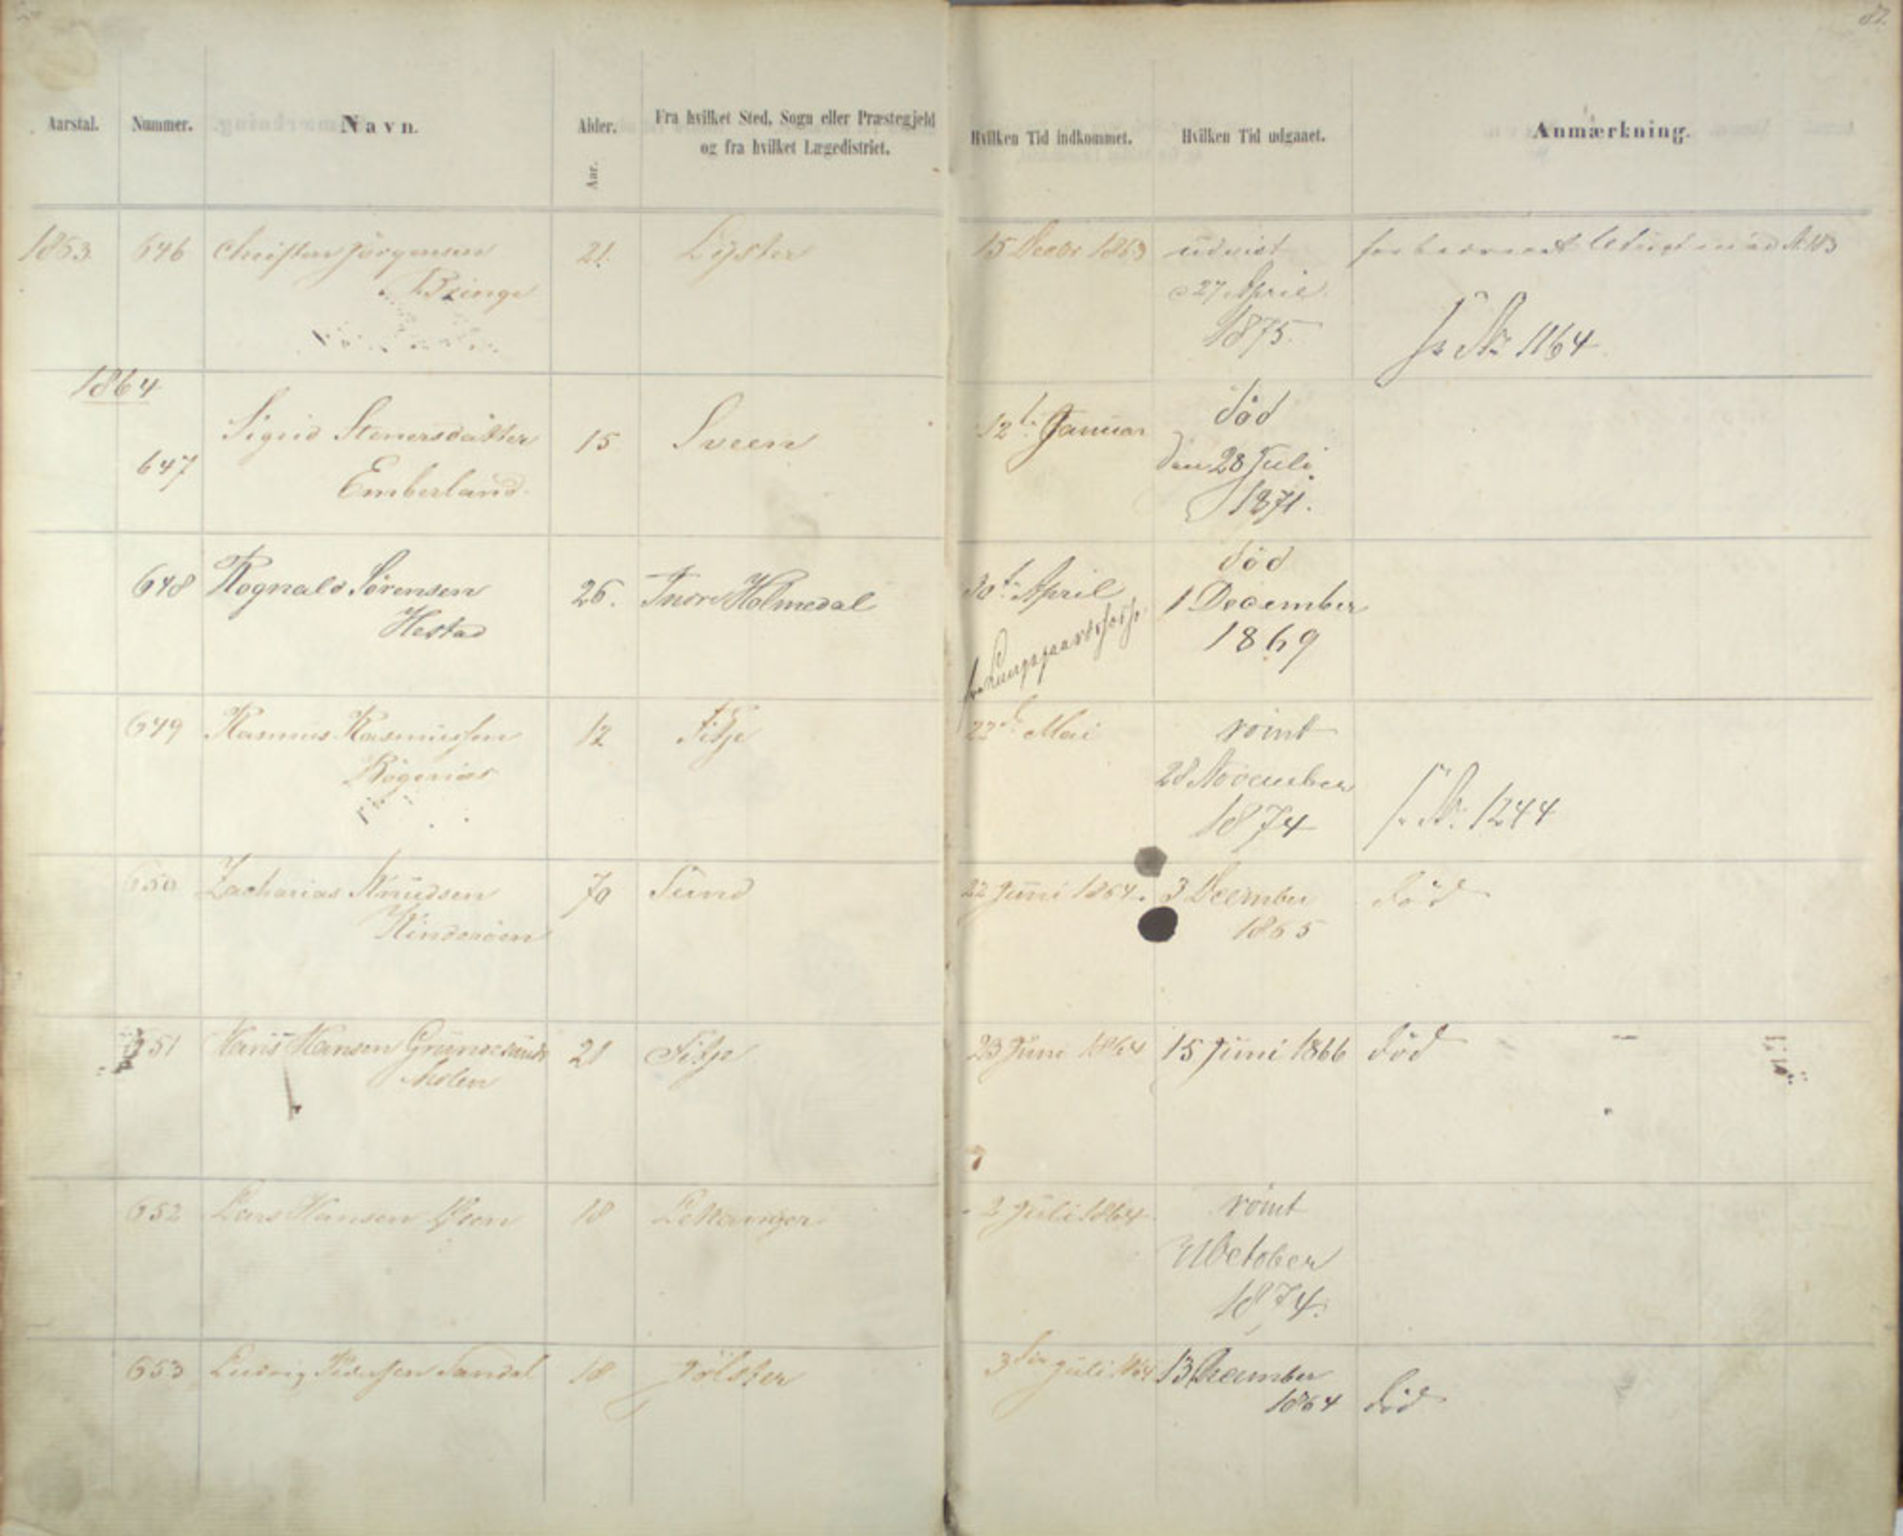 Aarstal. Nummer. Navn. Alder. Fra hvilket Sted, Sogn eller Præstegjeld Hvilken Tid indkommet. Hvilken Tid udgaaet. Anmærkning.
og fra hvilket Lægedistrict.
Aar.
1863. 646 Christen Jørgensen 21. Lyster 15 Decbr 1863 udvist
Bringe 27 April
1875. fr No 1164
1864
647 Sigrid Stenersdatter 15 Sveen 12te Januar død
Emberland. den 28 Juli
1871.
648 Rognald Sørensen 26. Indre Holmedal 30te April død
Hestad 1 December
fra Lungegaardshosp. 1869
649 Rasmus Rasmussen 12 Fitje 22de Mai rømt
28 November
1874 fr No. 1244
650 Zacharias Knudsen 70 Sund 22 Juni 1864. 3 December død
Hinderøen 1865
651 Hans Hansen 21 Fitje 23 Juni 1864 15 Juni 1866 død
Holen
652 Lars Hansen 18 Lekanger 2 Juli 1864 rømt
October
1874.
653 Ludvig Pedersen Sandal 18 Jølster 3die Juli 1864 13 December
1864 død